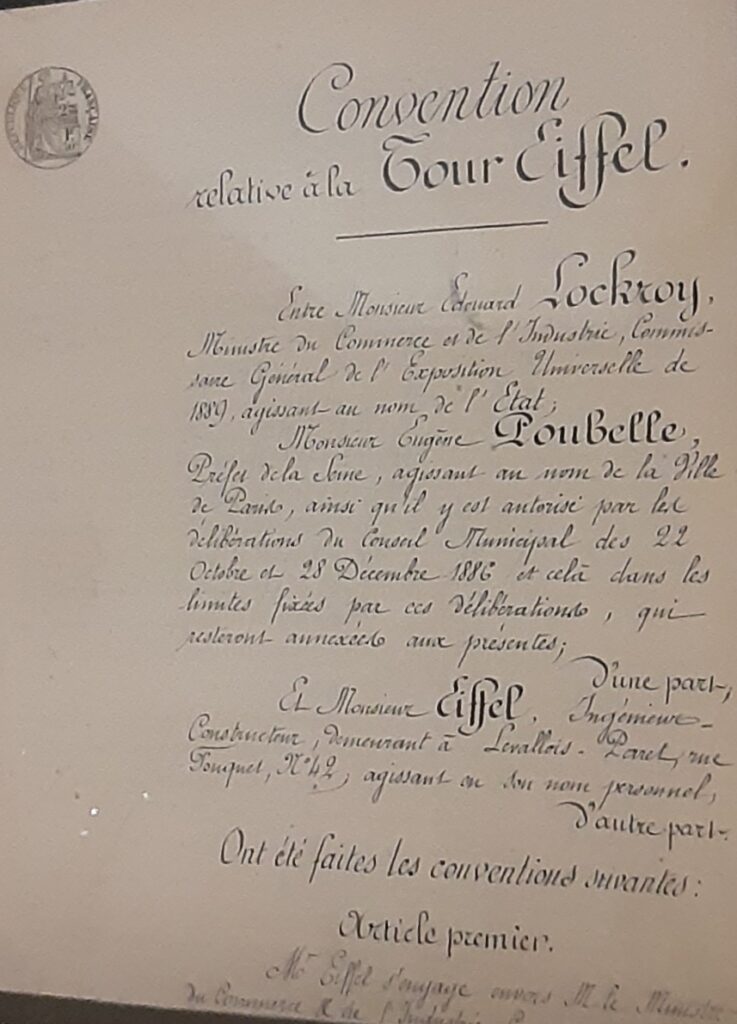 RÉPUBLIQUE FRANÇAISE
Convention
relative à la Tour Eiffel.
Entre Monsieur Edouard Lockroy,
Ministre du Commerce et de l'Industrie, Commis-
saire Général de l'Exposition Universelle de
1889, agissant au nom de l'Etat;
Monsieur Eugène Poubelle,
Préfet de la Seine, agissant au nom de la Ville
de Paris, ainsi qu'il y est autorisé par les
délibérations du Conseil Municipal des 22
Octobre et 28 Décembre 1886 et celà dans les
limites fixées par ces délibérations, qui
resteront annexées aux présentes;
D'une part,
Et Monsieur Eiffel, Ingénieur-
Constructeur, demeurant à Levallois-Paret, rue
Fouquet, N° 42, agissant en son nom personnel,
D'autre part.
Ont été faites les conventions suivantes:
Article premier.
Mr Eiffel s'engage envers M. le Ministre
du Commerce & de l'Industrie